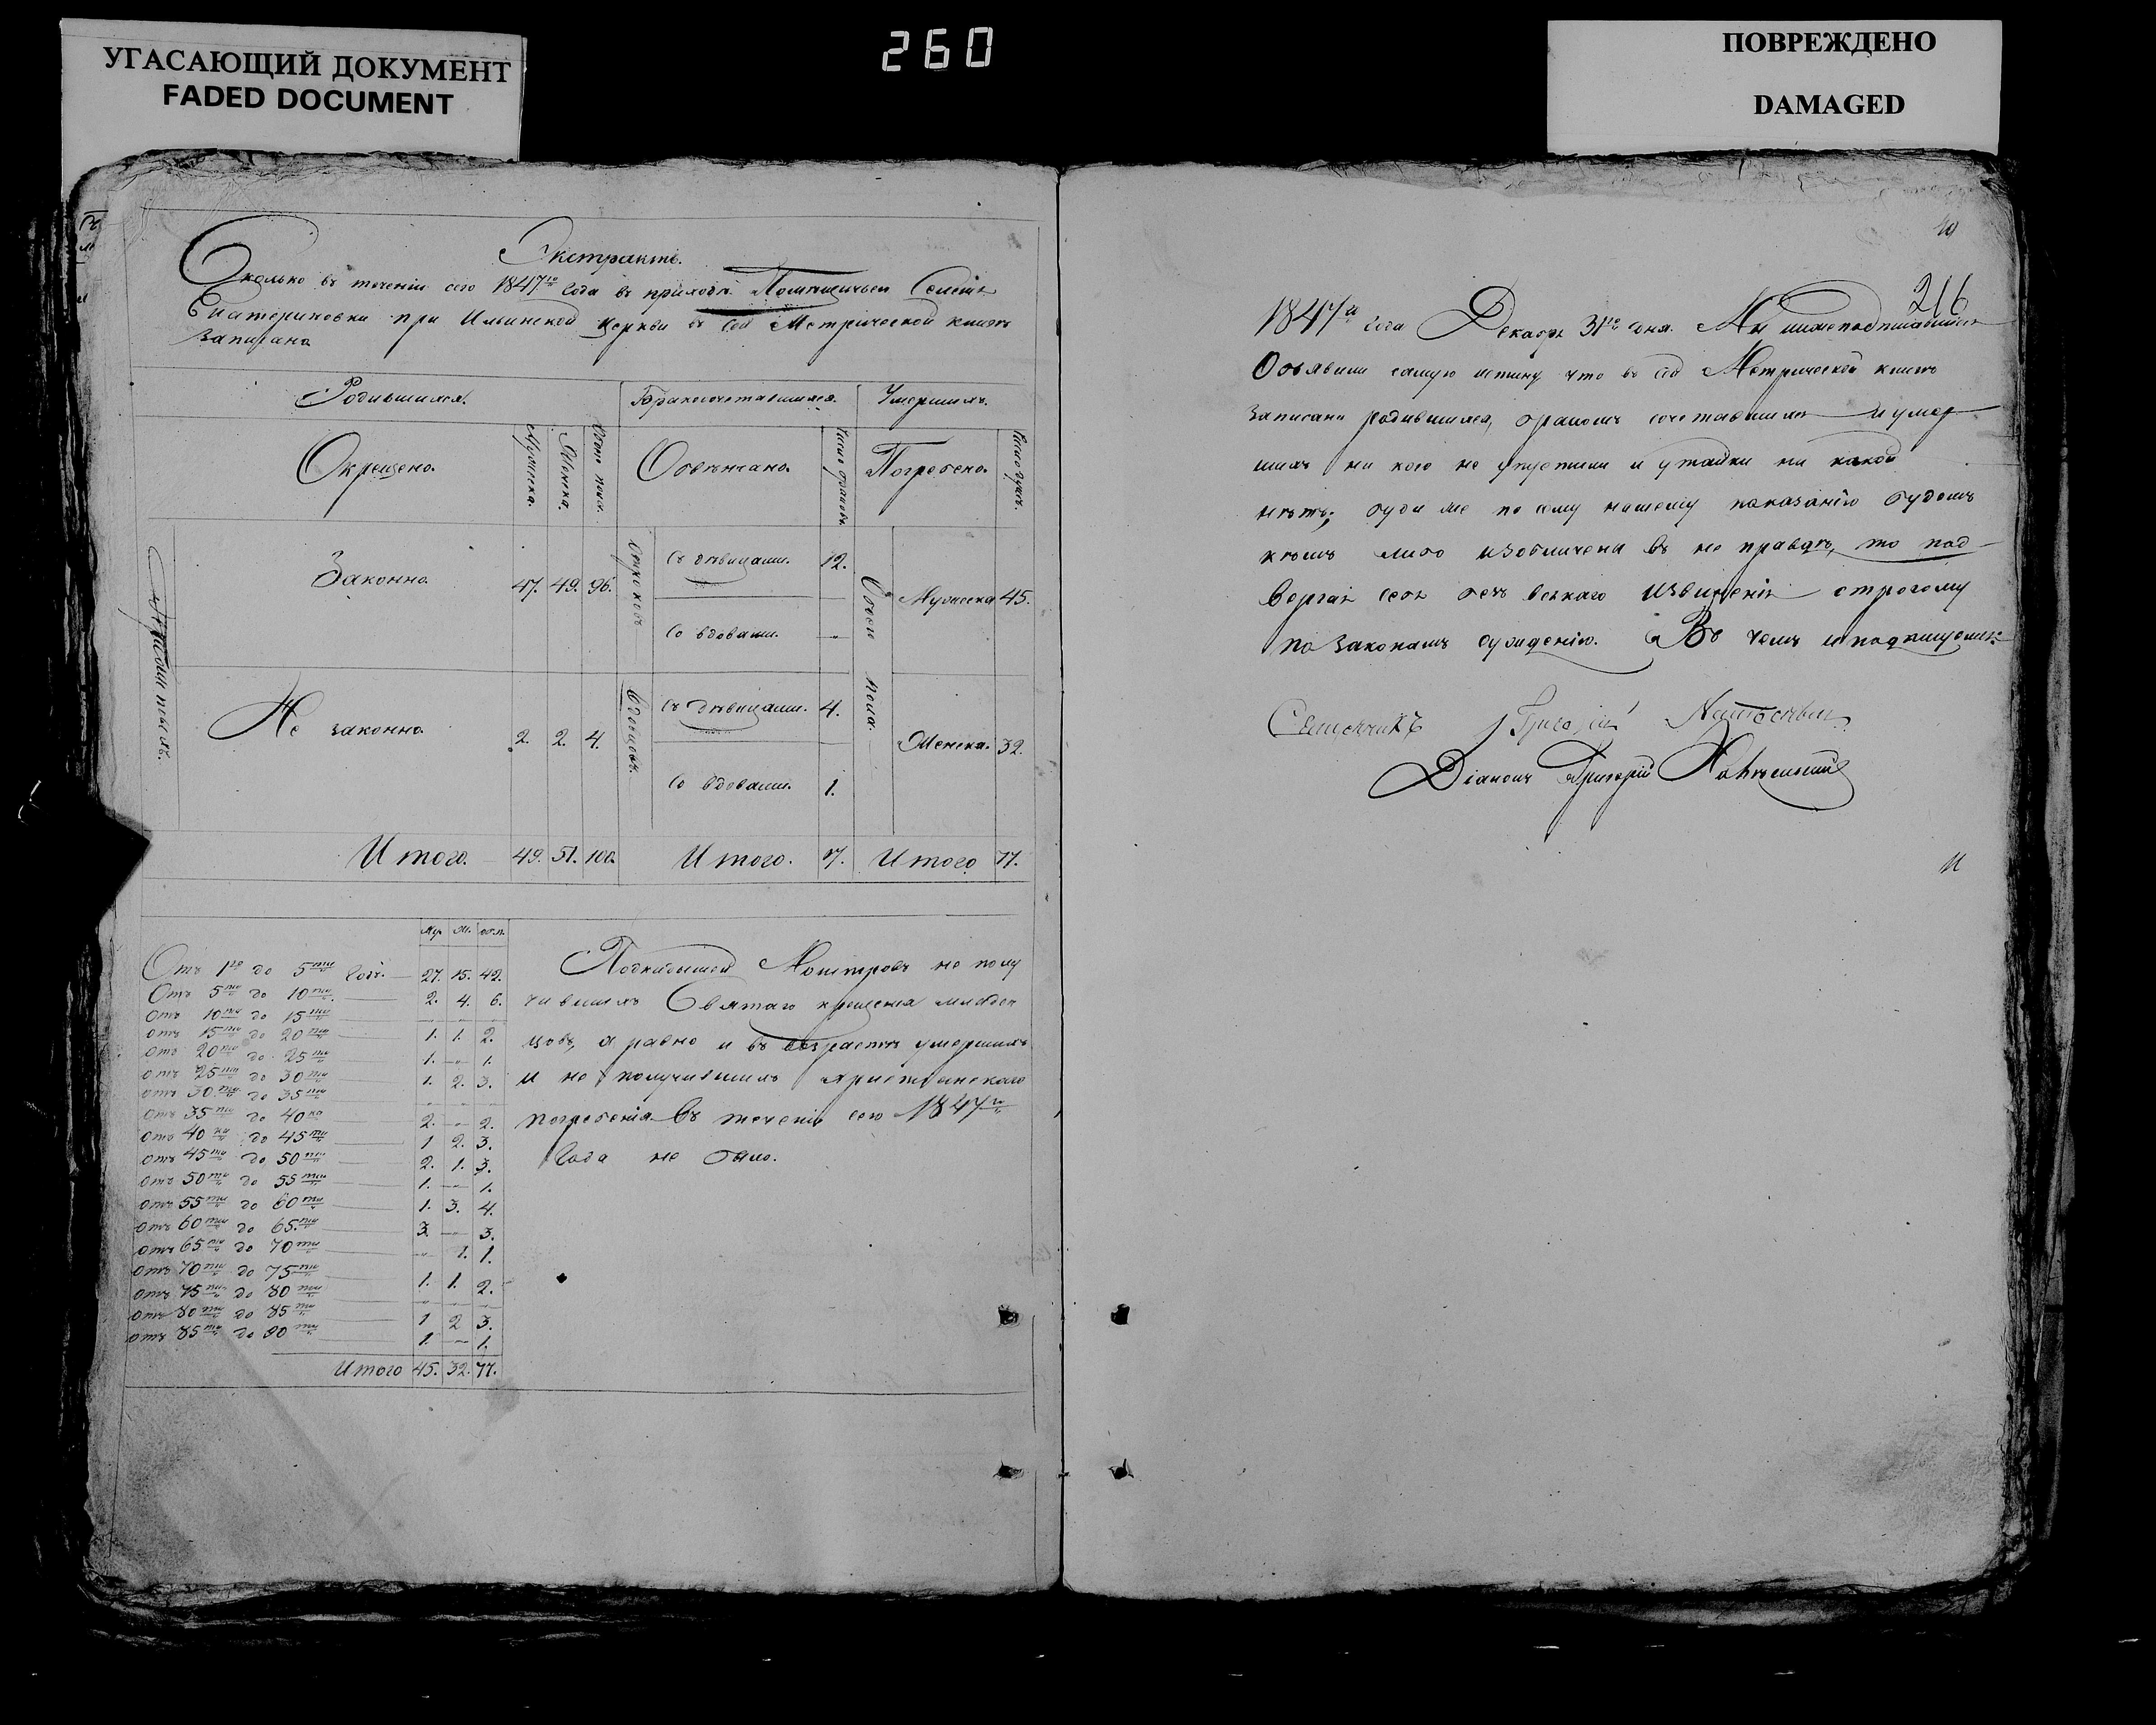 УГАСАЮЩИЙ ДОКУМЕНТ
FADED DOCUMENT
260
ПОВРЕЖДЕНО
DAMAGED
Экстрактъ.
Сколько въ теченіи сего 1847го года въ приходѣ Помѣщичьем Селеніи
Екатериновки при Ильинской Церкви въ сей Метрической книгѣ
записано
Родившихся. Бракосочетавшихся. Умершихъ.
Окрещено. Мужеска. Женска. Обоего пола. Обвѣнчано. Число браковъ. Погребено. Число душъ.
Законно. 47. 49. 96. Отроковъ Съ дѣвицами. 12. Обоего пола. Мужеска 45.
Со вдовами. —
Не законно. 2. 2. 4. Вдовцовъ. Съ дѣвицами. 4. Женска. 32.
Со вдовами. 1.
Итого. 49. 51. 100. Итого. 17. Итого 77.
Му. Ж. об. п.
Отъ 1го до 5ти Годъ. 27. 15. 42.
Отъ 5ти до 10ти. 2. 4. 6.
Отъ 10ти до 15ти — — —
отъ 15ти до 20ти 1. 1. 2.
отъ 20ти до 25ти 1. — 1.
отъ 25ти до 30ти 1. 2. 3.
отъ 30ти до 35ти — — —
отъ 35ти до 40ка 2. — 2.
отъ 40ка до 45ти 1 2. 3.
отъ 45ти до 50ти 2. 1. 3.
отъ 50ти до 55ти 1. — 1.
отъ 55ти до 60ти 1. 3. 4.
отъ 60ти до 65ти 3. — 3.
отъ 65ти до 70ти — 1. 1.
отъ 70ти до 75ти 1. 1. 2.
отъ 75ти до 80ти — — —
отъ 80ти до 85ти 1 2 3.
отъ 85ти до 90ти 1. — 1.
Итого 45. 32. 77.
не полу
чившихъ Святаго крещенія младен
цовъ, а равно и въ возрастѣ умершихъ
и не получившихъ християнскаго
погребенія въ теченіи сего 1847го
Года не было.
216
1847го года Декабря 31го дня. Мы нижеподписавшіеся
Объявили самую истину что въ сей Метрической книгѣ
записаны родившихся, бракомъ сочетавшихся и умер
шихъ ни кого не упустили и утайки ни какой
нѣтъ; буди же по сему нашему показанію будемъ
кѣмъ либо изобличены въ не правдѣ, то под
вергая себя безъ всякаго извиненія строгому
по законамъ сужденію. Въ чемъ и подпишуемся
Священникъ Григорій
Діаконъ Григорій